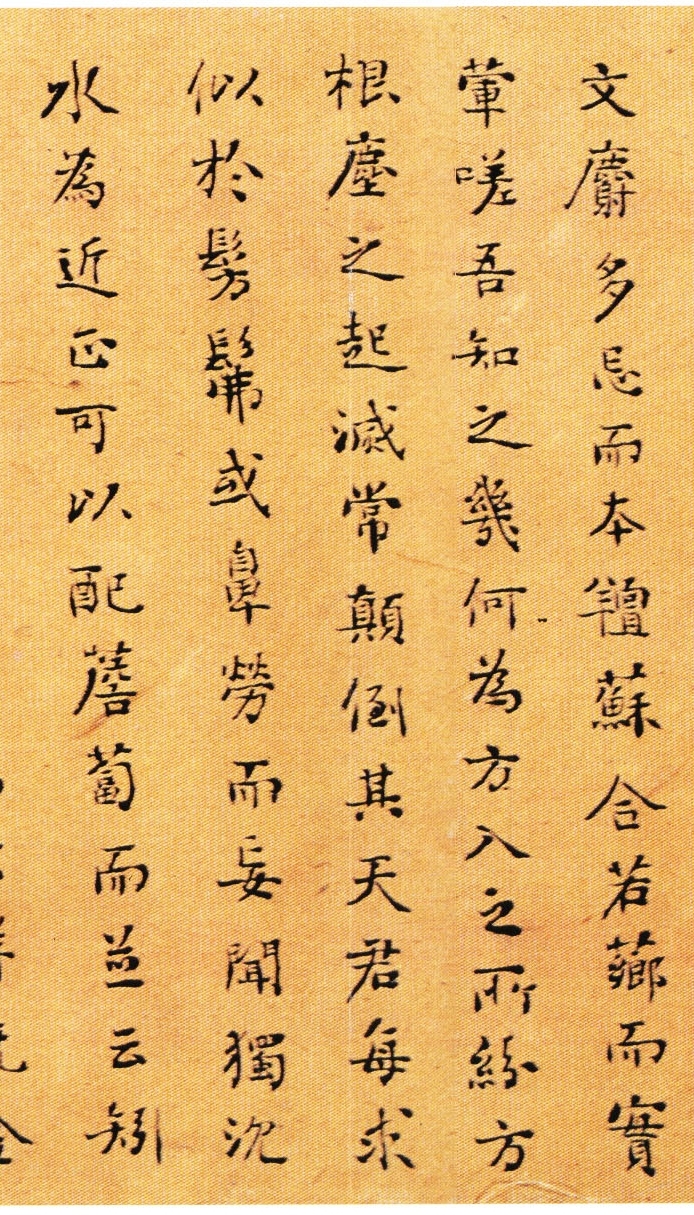 文麝多忌而本羶蘇合若薌而實
葷嗟吾知之幾何為方入之所紛方
根塵之起滅常顛倒其天君每求
似於髣髴或鼻勞而妄聞獨沈
水為近正可以配薝蔔而並云矧